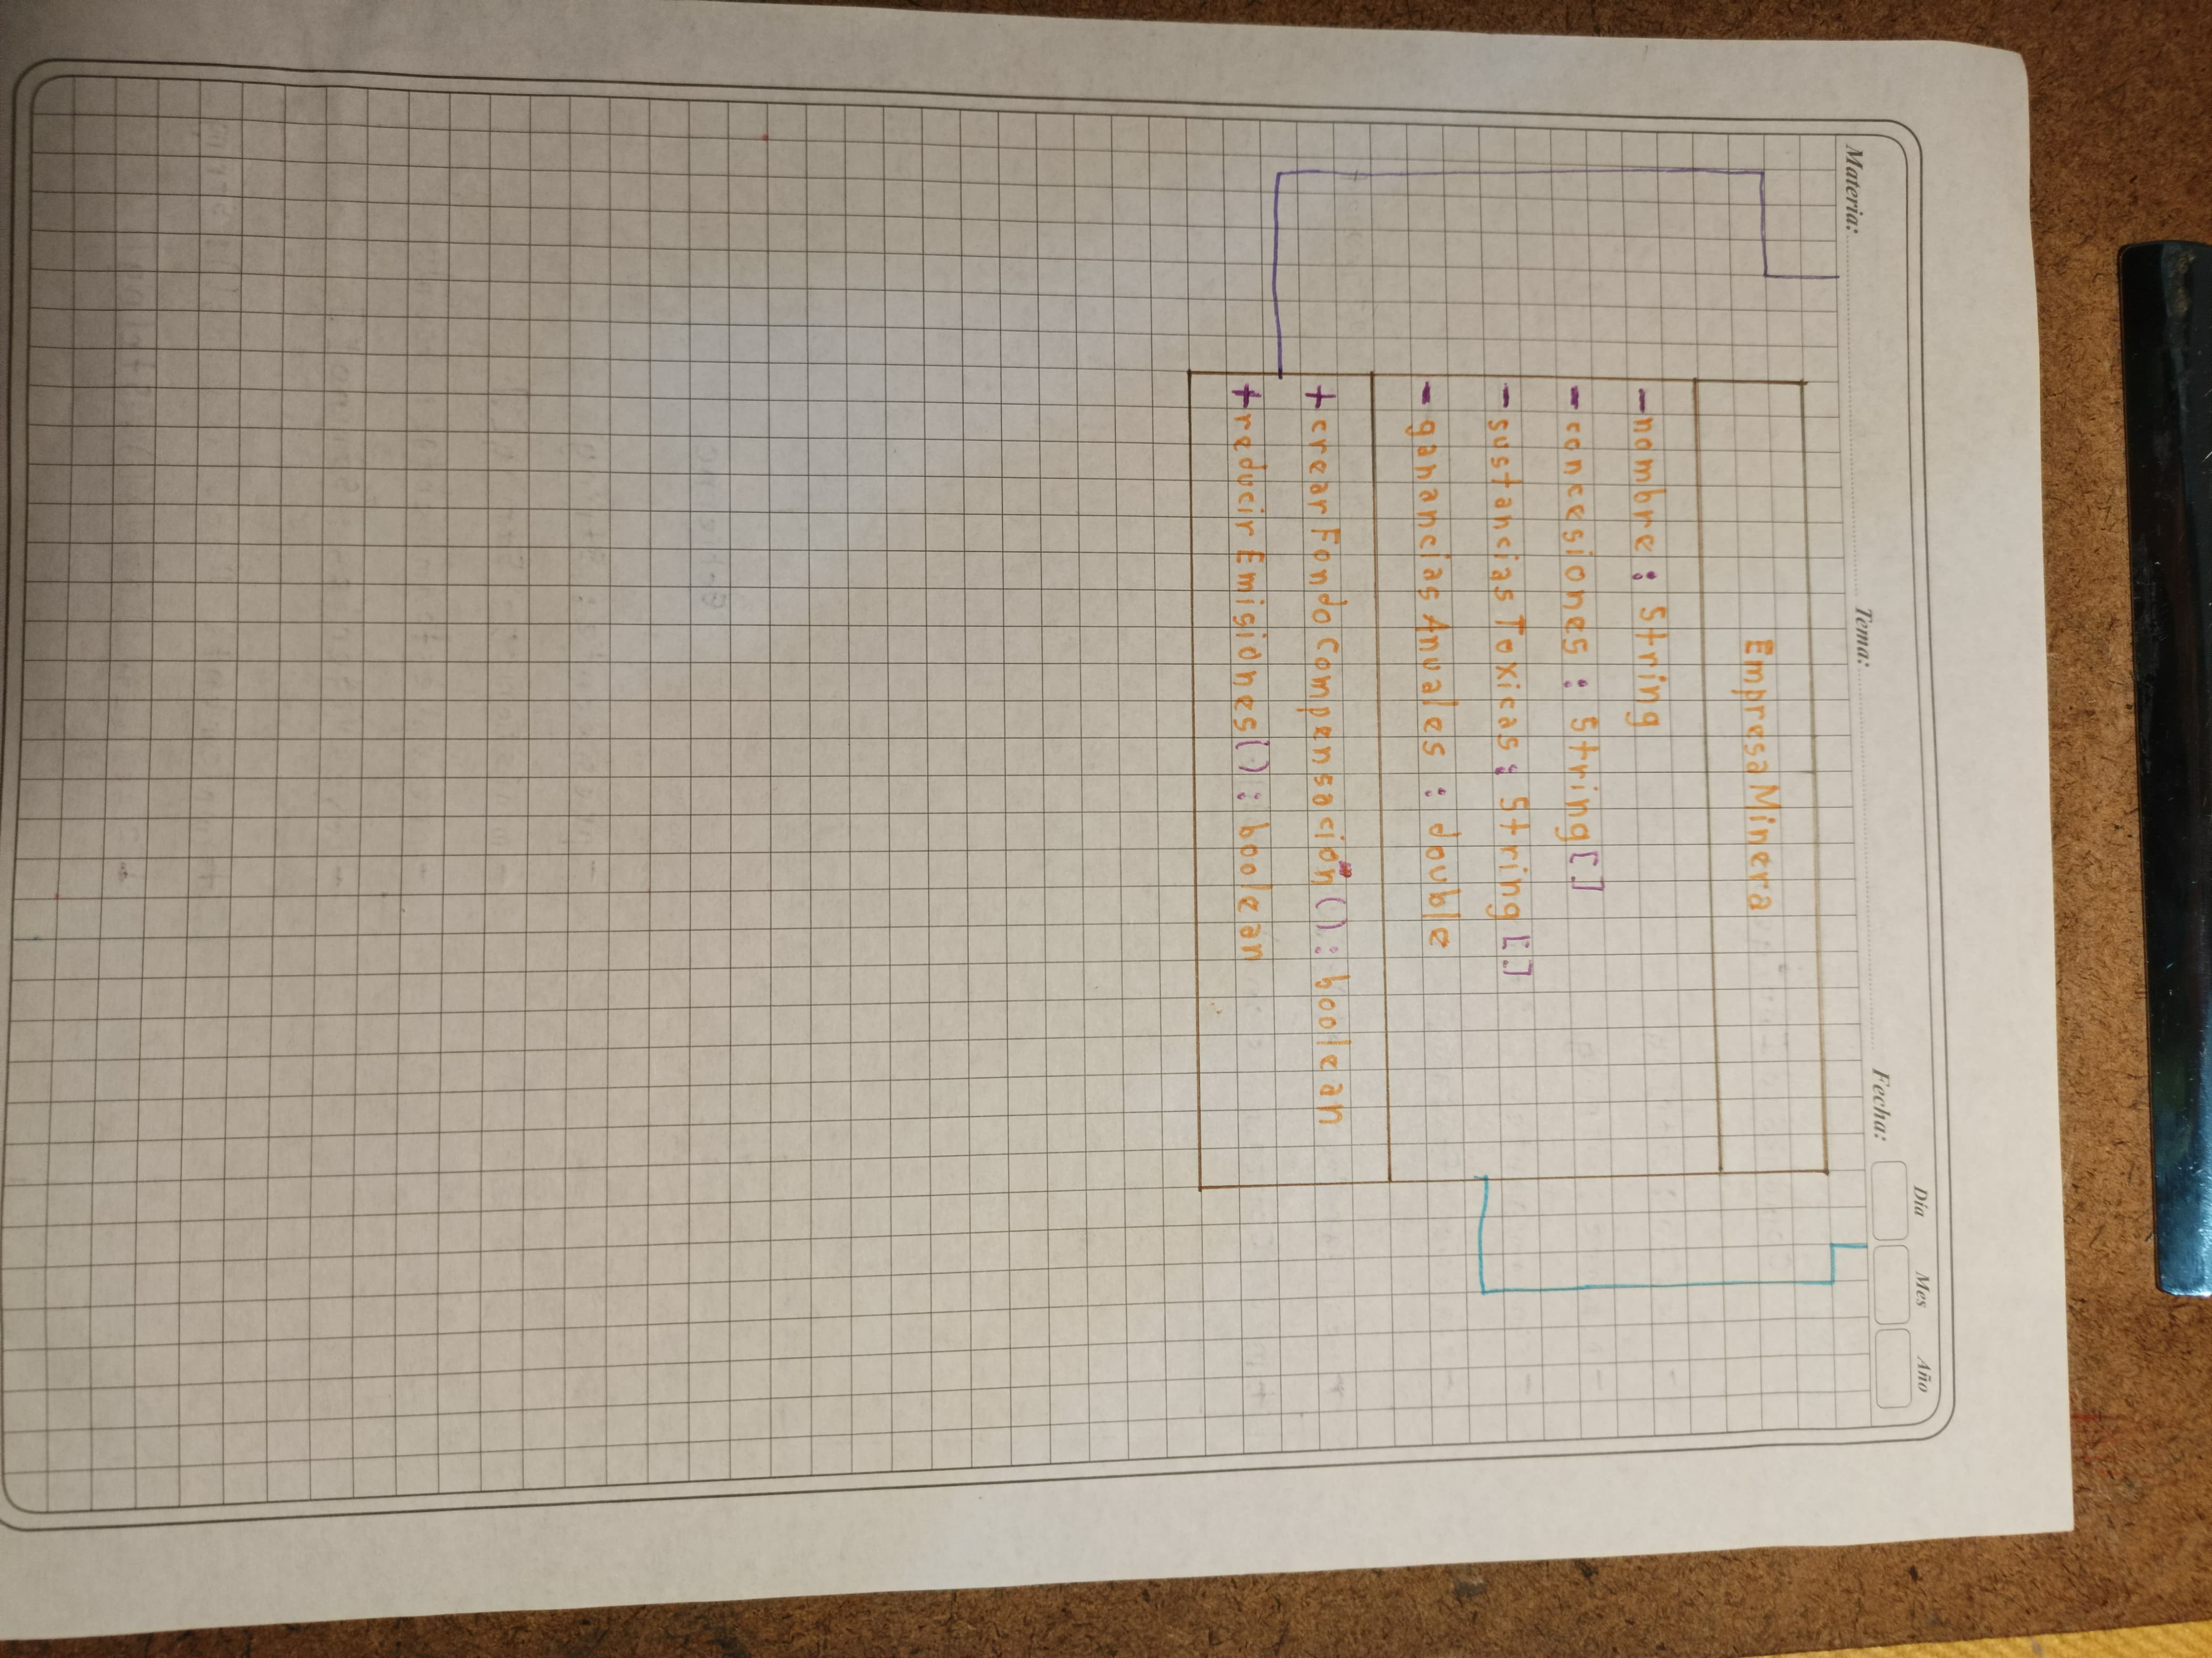 Materia: Tema: Fecha: Día Mes Año
EmpresaMinera
- nombre : String
- concesiones : String[]
- sustanciasToxicas : String[]
- gananciasAnuales : double
+ crearFondoCompensación() : boolean
+ reducirEmisiones() : boolean